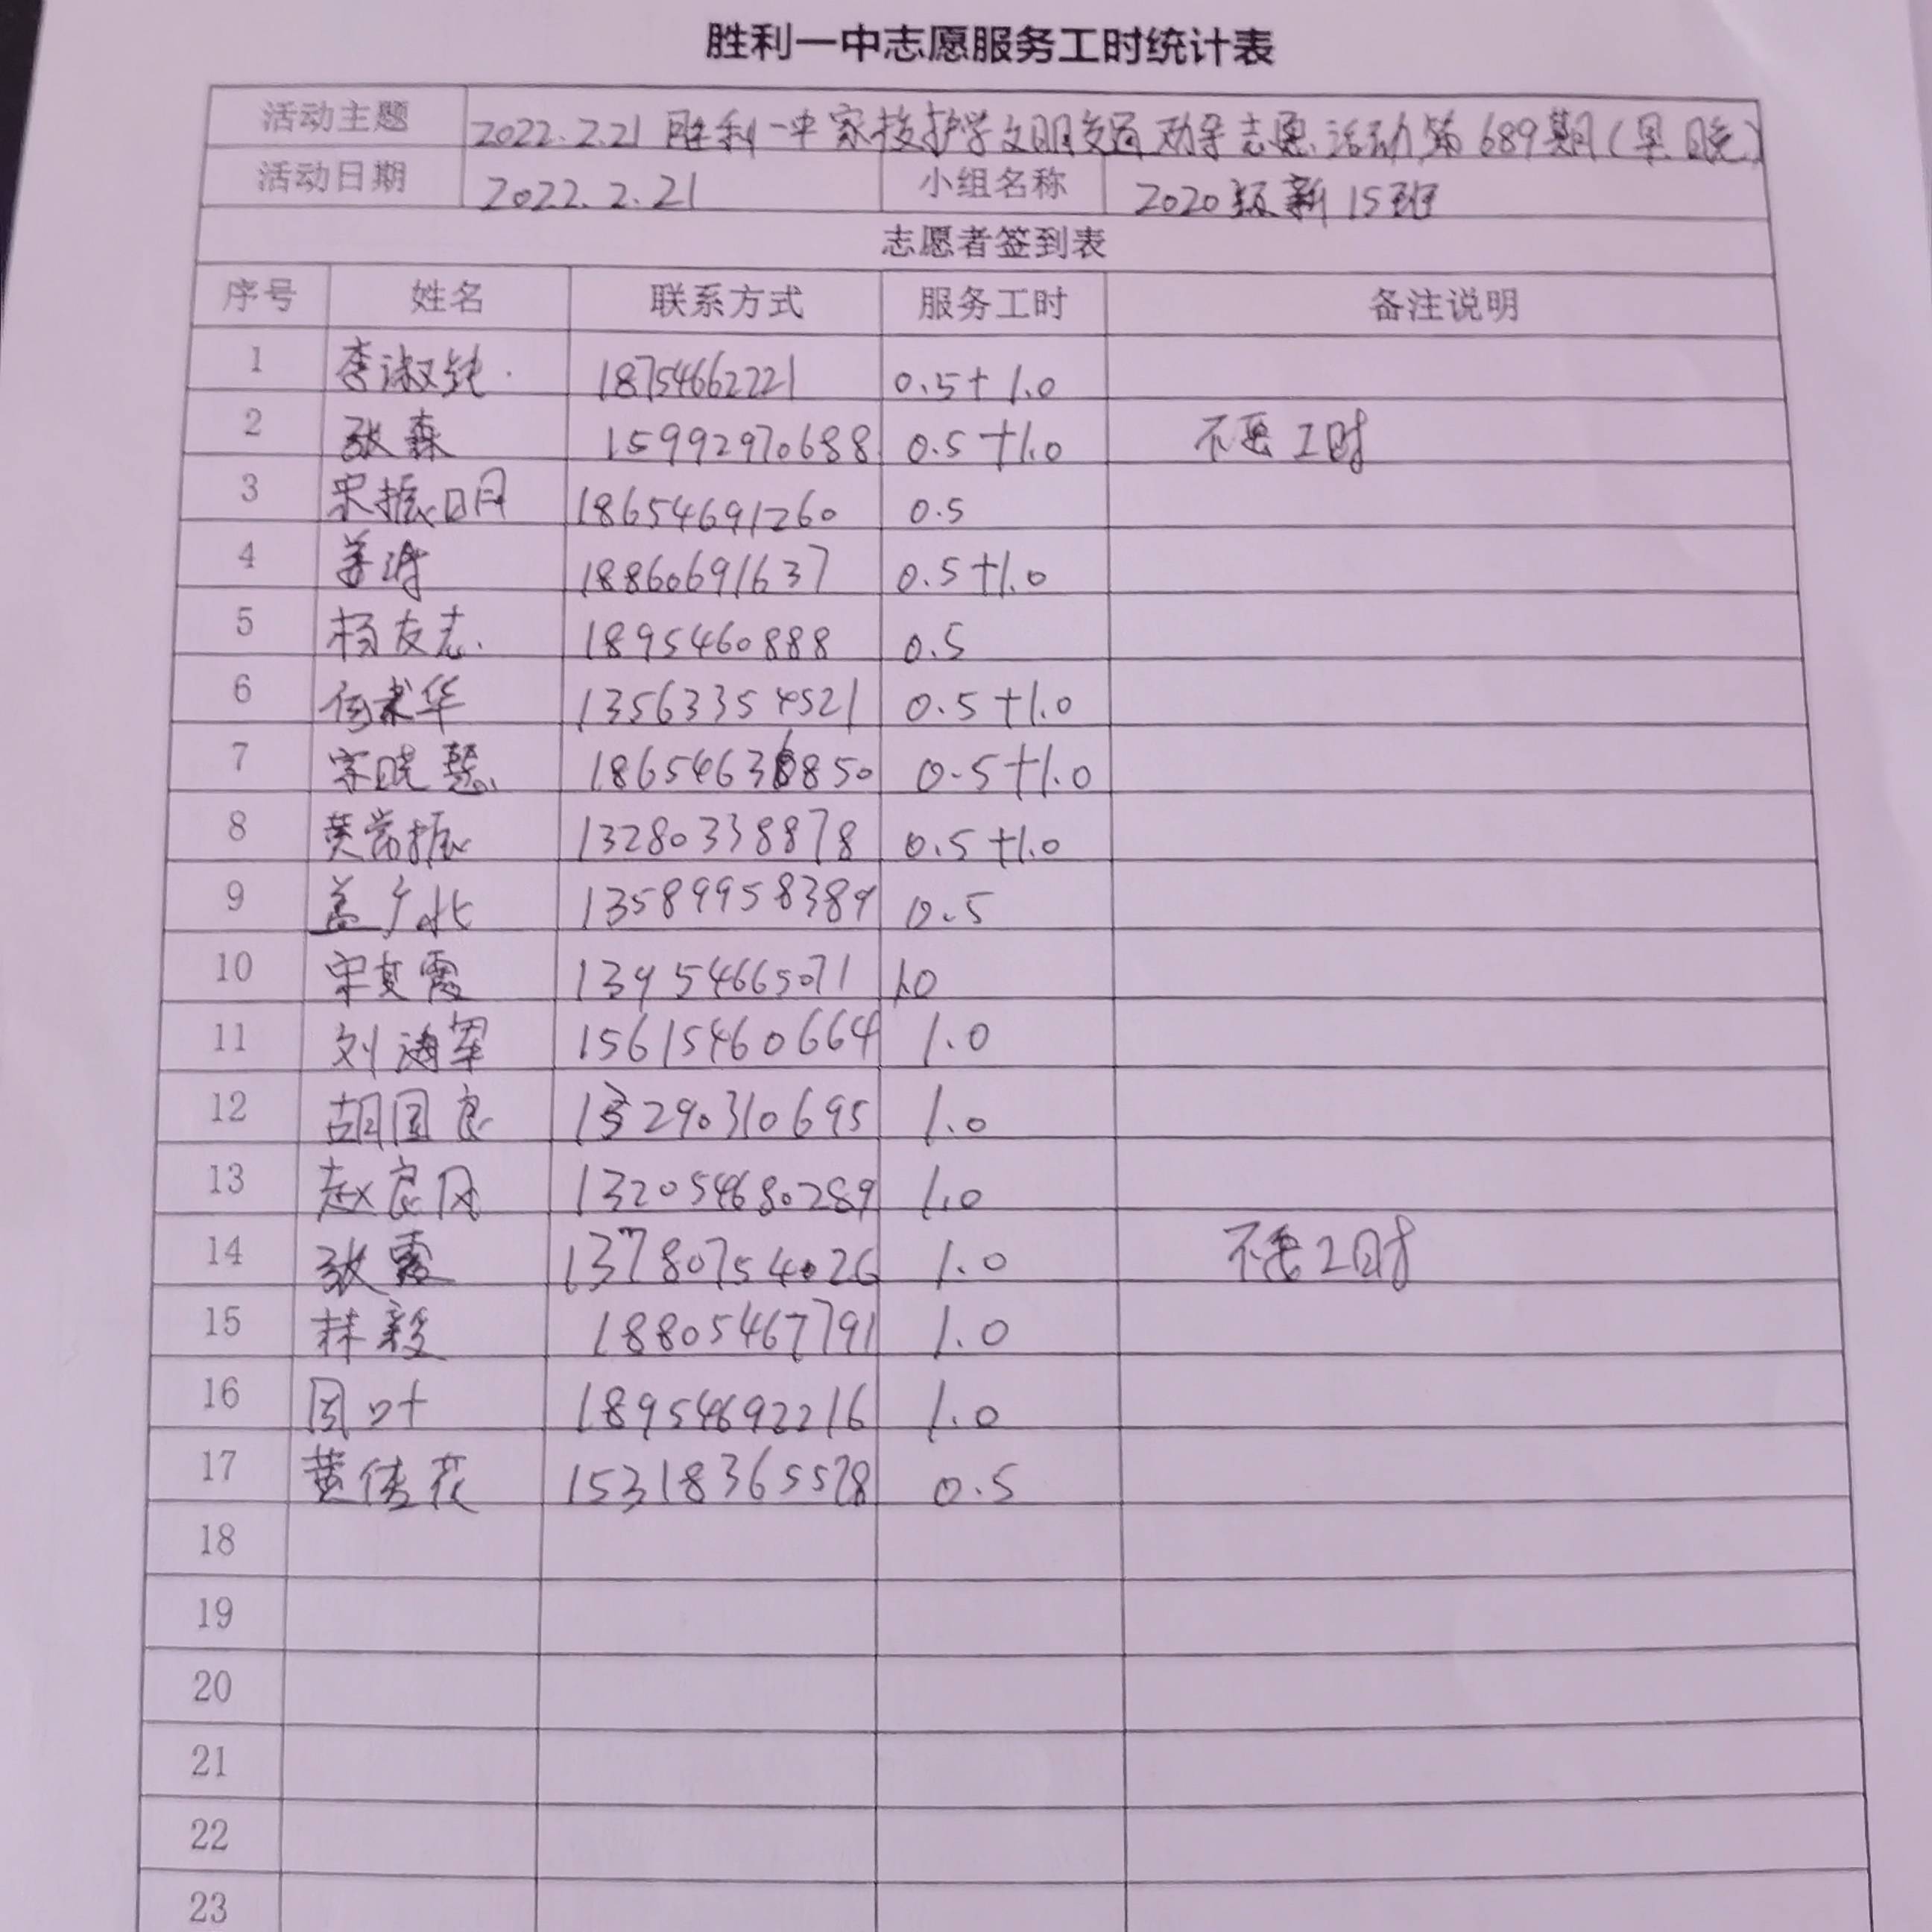 胜利一中志愿服务工时统计表
活动主题 2022.2.21 胜利一中家校护学文明交通劝导志愿活动第689期(早.晚)
活动日期 2022.2.21 小组名称 2020级新15班
志愿者签到表
序号 姓名 联系方式 服务工时 备注说明
1 李淑 18754662221 0.5+1.0
2 张森 15992970688 0.5+1.0 不要工时
3 宋振明 18654691260 0.5
4 姜涛 18860691637 0.5+1.0
5 杨友志 1895460888 0.5
6 华 13563354521 0.5+1.0
7 宋晓慧 18654636850 0.5+1.0
8 黄常振 13280338878 0.5+1.0
9 盖广北 13589958389 0.5
10 宋艾霞 13954665071 1.0
11 刘海军 15615460664 1.0
12 胡国良 13290310695 1.0
13 赵良风 132054680289 1.0
14 张霞 13780754026 1.0 不要工时
15 林毅 18805467791 1.0
16 周叶 18954692216 1.0
17 黄倩花 15318365578 0.5
18
19
20
21
22
23